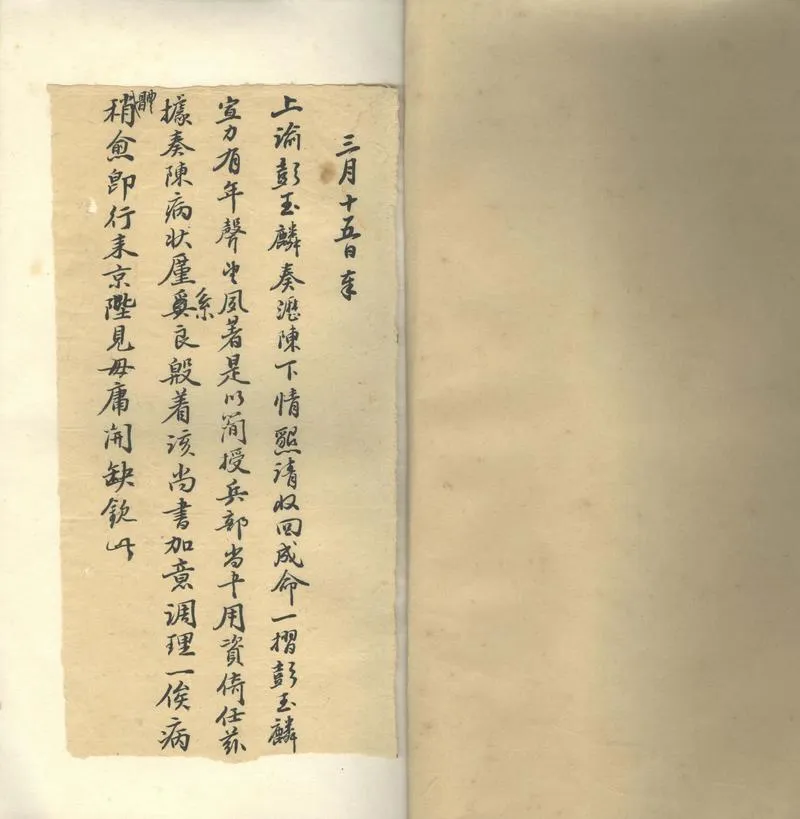 三月十五日奉
上谕彭玉麟奏瀝陳下情懇请收回成命一摺彭玉麟
宣力有年聲望夙著是以簡授兵部尚书用資倚任茲
據奏陳病状廑系良殷着该尚書加意调理一俟病
體稍愈即行来京陛見毋庸開缺欽此